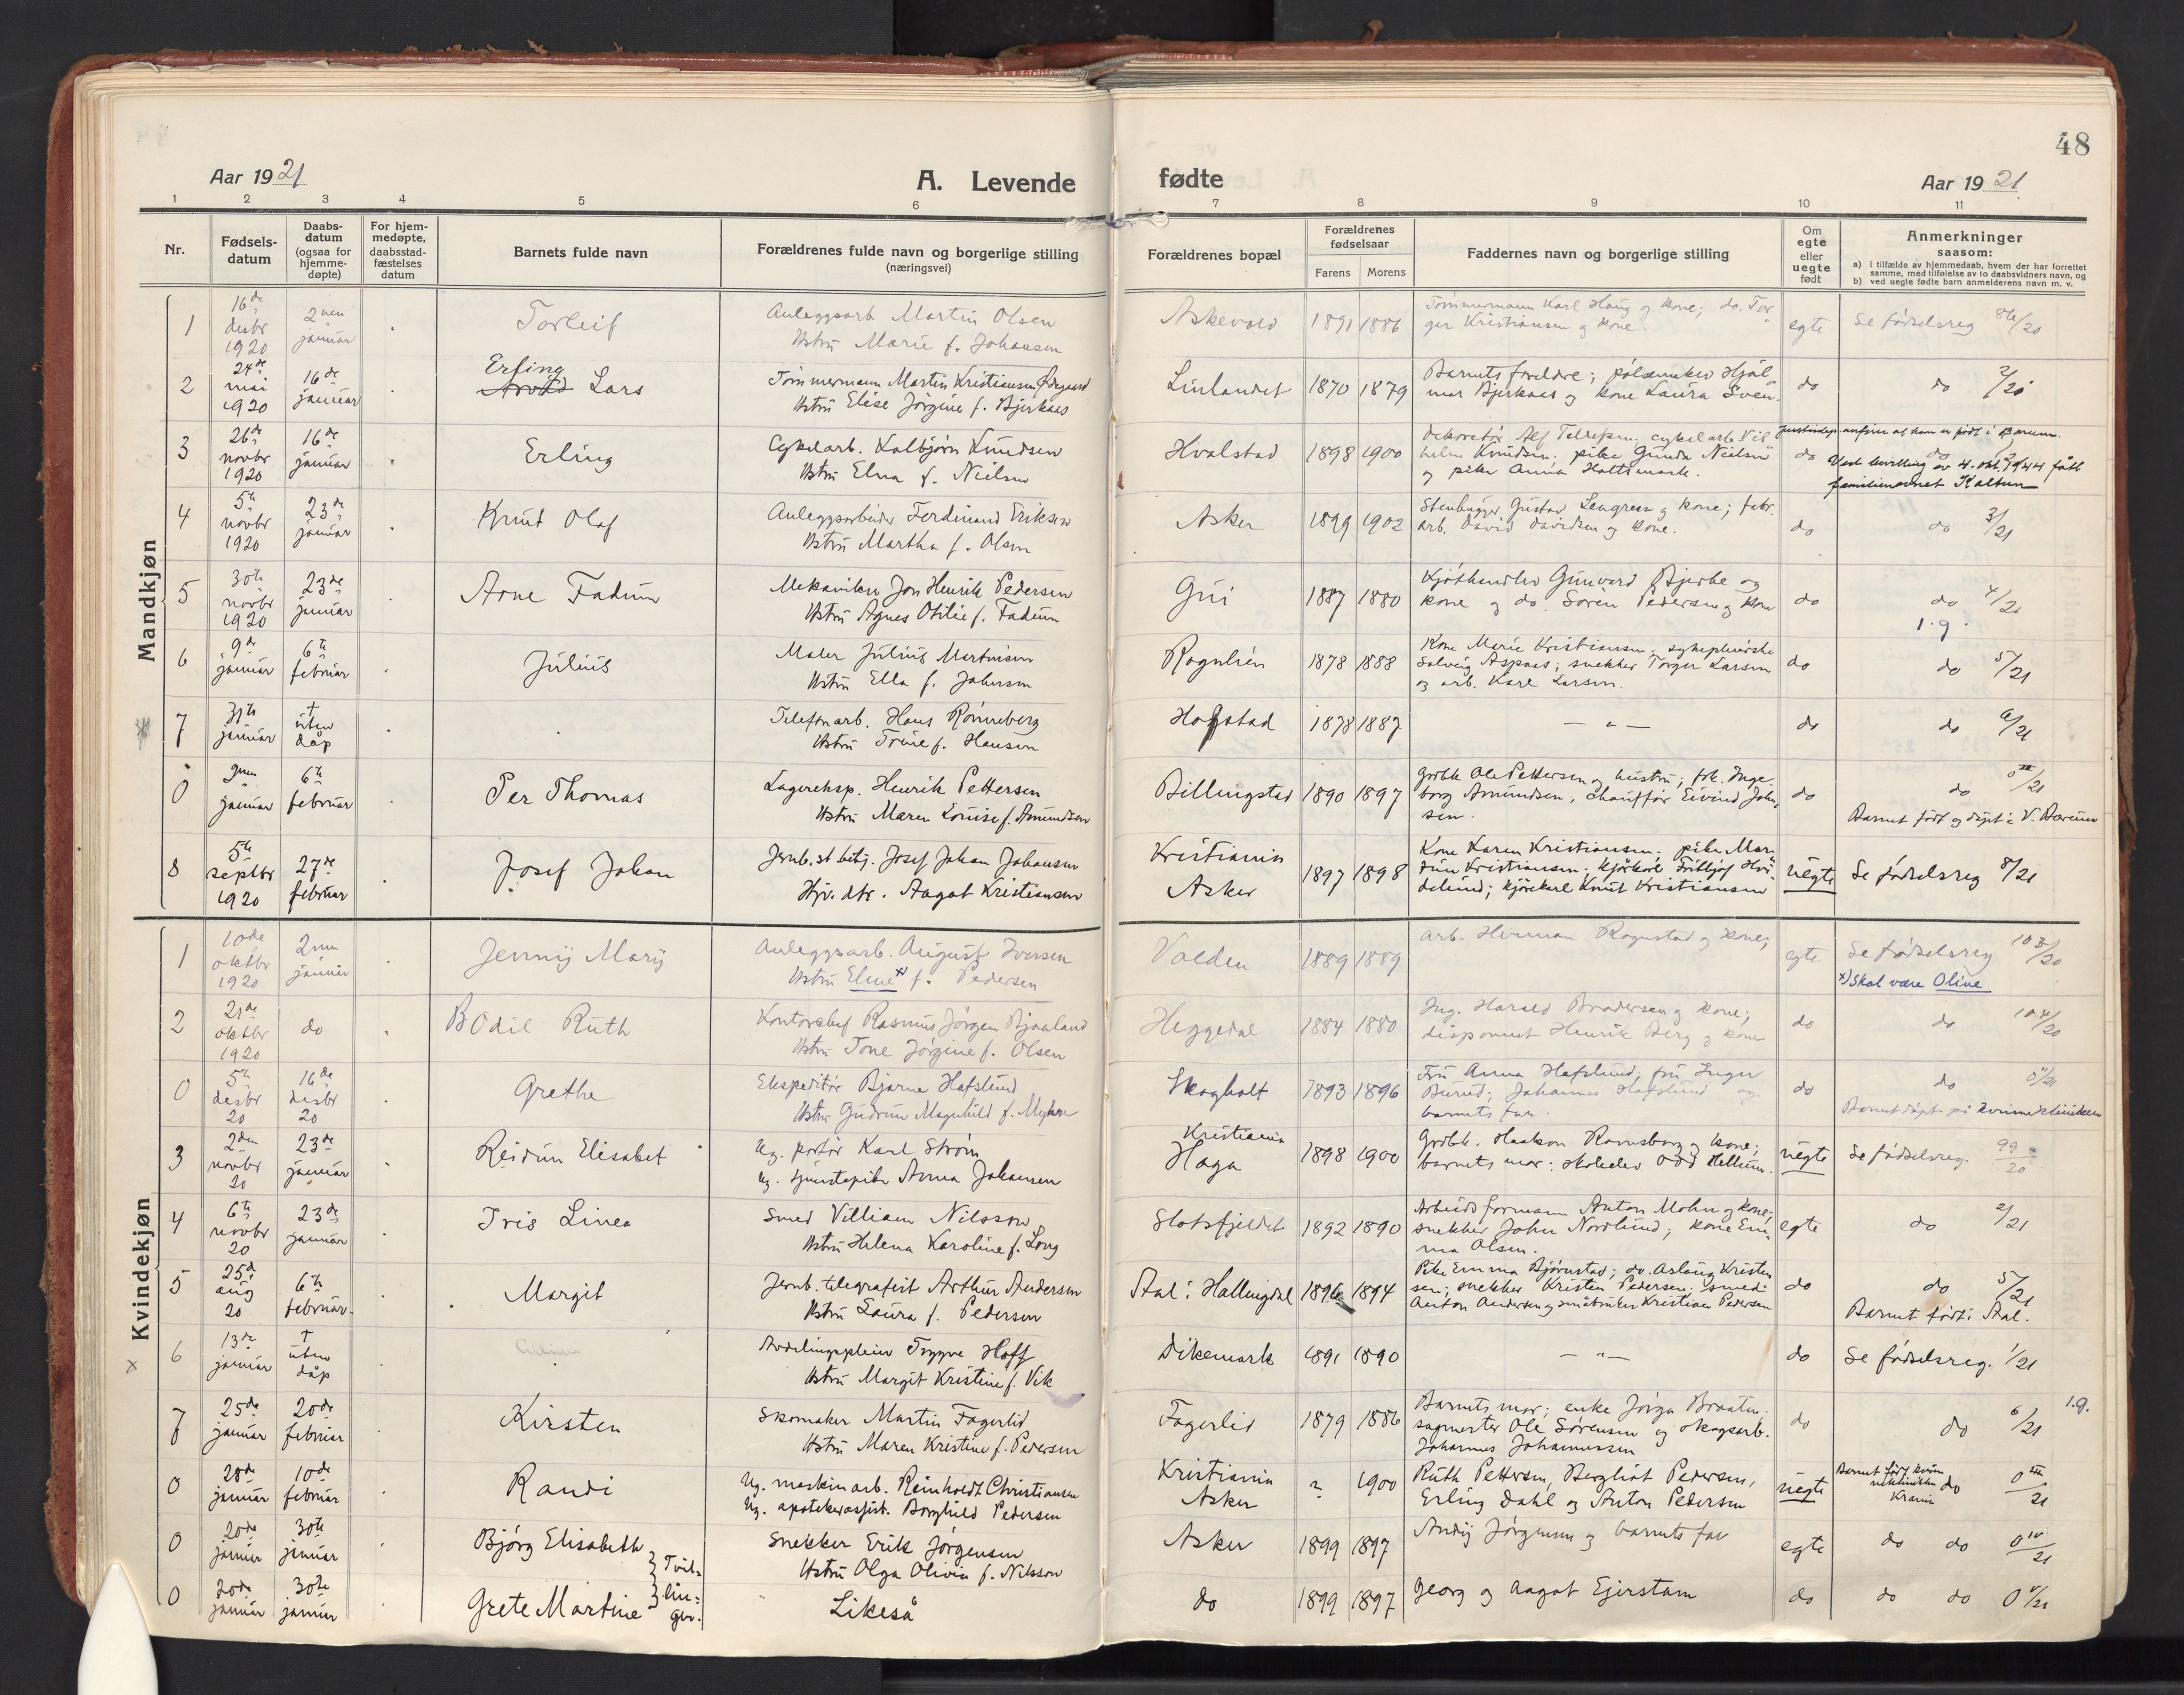 48
Aar 1921
A. Levende
fødte
Aar 1921
1 2 3 4 5 6 7 8 9 10 11
Nr.
Fødsels-
datum
Daabs-
datum
(ogsaa for
hjemme-
døpte)
For hjem-
medøpte,
daabsstad-
fæstelses
datum
Barnets fulde navn
Forældrenes fulde navn og borgerlige stilling
(næringsvei)
Forældrenes bopæl
Forældrenes
fødselsaar
Farens Morens
Faddernes navn og borgerlige stilling
Om
egte
eller
uegte
født
Anmerkninger
saasom:
a) i tilfælde av hjemmedaab, hvem der har forrettet
samme, med tilføielse av to daabsvidners navn, og
b) ved uegte fødte barn anmelderens navn m. v.
Mandkjøn
1 16de desbr 1920 2nen januar Torleif
Anleggsarb Martin Olsen
Hstru Marie f. Johansen
Askevold 1891 1886
Tømmermann Karl Haug og kone; do. Tor-
ger Kristiansen og kone.
egte Se fødselsreg 86/20
2 24de mai 1920 16de januar
Erling
Arvid Lars
Tømmermann Martin Kristiansen Ødegaard
Hstru Elise Jørgine f. Bjerkaas
Linlandet 1870 1879
Barnets foreldre; pølsemaker Hjal-
mar Bjerkaas og kone Laura Sven
do do 2/20
3 26de novbr 1920 16de januar Erling
Cykelarb. Kalbjørn Knudsen
Hstru Elna f. Nielsen
Hvalstad 1898 1900
Dekoratør Alf Tellefsen. cykelarb. Vil-
helm Knudsen. pike Gunda Nielsen
og pike Anna Holtsmark.
do do
anføres at han er født i Bærum.
Ved bevilling av 4. okt. 1944 fått
familienavnet Kaltun
4 5te novbr 1920 23de januar Knut Olaf
Anleggsarbeider Ferdinand Eriksen
Hstru Martha f. Olsen
Asker 1899 1902
Stenhugger Gustav Lengren og kone; fabr.
arb. David Davidsen og kone.
do do 3/21
5 30te novbr 1920 23de januar Arne Fadum
Mekaniker Jon Henrik Pedersen
Hstru Agnes Otilie f. Fadum
Gui 1887 1880
Kjøthandler Gunvard Bjerke og
kone og do. Søren Pedersen og kone
do do 4/21
1.9.
6 9de januar 6te februar Julius
Maler Julius Martinsen
Hstru Ella f. Johnsen
Rognlien 1878 1888
Kone Marie Kristiansen; sykepleierske
Solveig Aspaas; snekker Torger Larsen
og arb. Karl Larsen.
do do 5/21
7 31te januar † uten dåp
Telefonarb. Hans Rønneberg
Hstru Trine f. Hansen
Hogstad 1878 1887 — „ — do do 6/21
0 2nen januar 6te februar Per Thomas
Lagereksp. Henrik Pettersen
Hstru Maren Louise f. Amundsen
Billingstad 1890 1897
Grdbr. Ole Pettersen og hustru; frk. Inge-
borg Amundsen; chauffør Eivind John-
sen.
do do 0/21
Barnet født og døpt i V. Bærum
8 5te septbr 1920 27de februar Josef Johan
Jernb. st. betj. Josef Johan Johansen
Hjv. dtr. Aagot Kristiansen
Kristiania
Asker
1897 1898
Kone Karen Kristiansen; pike Mar-
tine Kristiansen. kjørkarl Fritjof Hvi-
delund; kjørekarl Knut Kristiansen
uegte Se fødselsreg 8/21
Kvindekjøn
1 10de oktbr 1920 2nen januar Jenny Mary
Anleggsarb. August Iversen
Hstru Eline x) f. Pedersen
Volden 1889 1889
Arb. Herman Rognstad og kone;
egte Se fødselsreg 103/20
x) Skal være Oline
2 21de oktbr 1920 do Bodil Ruth
Kontorchef Rasmus Jørgen Bjaaland
Hstru Tone Jørgine f. Olsen
Heggedal 1884 1880
Ing. Harald Brodersen og kone;
disponent Henrik Berg og kone
do do 104/20
0 5te desbr 20 16de desbr 20 Grethe
Ekspeditør Bjarne Hafslund
Hstru Gudrun Magnhild f. Myhre
Skogholt 1893 1896
Fru Anna Hafslund; fru Inger
Burud; Johannes Hafslund og
barnets far.
do do 0/21
Barnet døpt på kvinneklinikken
3 2den novbr 20 23de januar Reidun Elisabet
Ug. portør Karl Strøm
Ug. tjenstepike Anna Johansen
Kristiania
Haga
1898 1900
Grdbr. Haakon Ravnsborg og kone;
barnets mor: skoleelev Odd Hellum.
uegte Se fødselsreg. 99/20
4 6te novbr 20 23de januar Iris Linea
Smed Villiam Nilsson
Hstru Helena Karoline f. Lång
Slotsfjeldet 1892 1890
Arbeidsformann Anton Mohn og kone;
snekker John Nordlund; kone Em-
ma Olsen.
egte do 2/21
5 25de aug 20 6te februar Margit
Jernb. telegrafist Arthur Andersen
Hstru Laura f. Pedersen
Aal i Hallingdal 1896 1894
Pike Emma Bjørnstad; do. Aslaug Kristen-
sen; snekker Kristen Pedersen; smed
Anton Andersen og småbruker Kristian Pedersen
do do 5/21
Barnet født i Aal.
6 13de januar † uten dåp
Avdelingspleier Trygve Hoff
Hstru Margit Kristine f. Vik
Dikemark 1891 1890 — „ — do Se fødselsreg. 1/21
7 25de januar 20de februar Kirsten
Skomaker Martin Fagerlid
Hstru Maren Kristine f. Pedersen
Fagerlid 1879 1886
Barnets mor; enke Jørga Braaten.
sagmester Ole Sørensen og skogsarb.
Johannes Johannessen
do do 6/21 1.9.
0 28de januar 10de februar Randi
Ug. maskinarb. Reinholdt Christiansen
Ug. apotekerassist. Borghild Pedersen
Kristiania
Asker
? 1900
Ruth Pettersen, Bergliot Pedersen,
Erling Dahl og Anton Pedersen
uegte
Barnet født kvin-
neklinikken
Krania
do 0/21
0 20de januar 30te januar Bjørg Elisabeth
Snekker Erik Jørgensen
Hstru Olga Olivia f. Nilsson
Asker 1899 1897
Andy Jørgensen og barnets far
egte do do 0/21
Tvil-
lin-
ger.
0 20de januar 30te januar Grete Martine
Likeså
do 1899 1897
Georg og Aagot Ejerstam
do do do 0/21